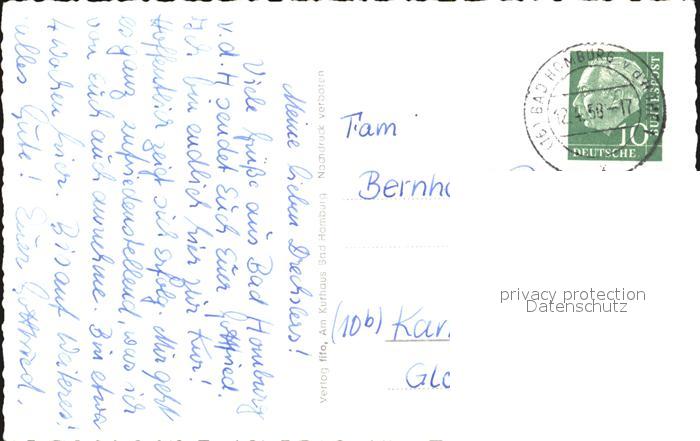 Meine lieben Drechslers!
Viele Grüße aus Bad Homburg
v.d.H. sendet Euch Euer Gottfried.
Ich bin endlich hier zur Kur!
Hoffentlich zeigt sich Erfolg. Mir geht
es ganz zufriedenstellend, was ich
von Euch auch annehme. Bin etwa
4 Wochen hier. Bis auf Weiteres!
alles Gute! Euer Gottfried.
Verlag fifo, Am Kurhaus Bad Homburg Nachdruck verboten
(16) BAD HOMBURG v d
12.4.58-17
10
DEUTSCHE
BUNDESPOST
Fam
Bernh
(10b) Kar
Glo
privacy protection
Datenschutz